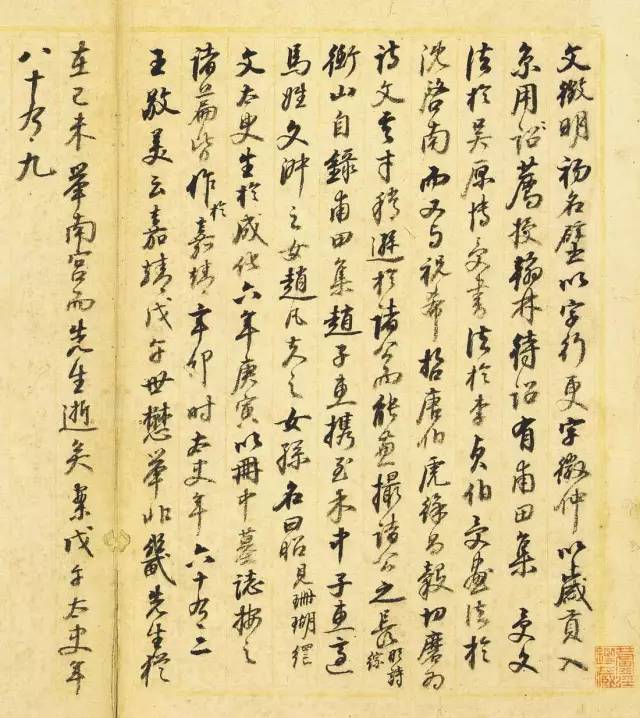 文徵明初名壁以字行更字徵仲以歲貢入
京用詔薦授翰林待詔有甫田集 受文
法於吳原博受書法於李貞伯受畫法於
沈啓南而又与祝希哲唐伯虎徐昌穀切磨为
诗文其才稍遜於諸公而能兼撮諸公之長 明詩綜
衡山自錄甫田集趙子惠携至禾中子惠適
馬姓文之女趙凡夫之女孫名曰昭 見珊瑚網
文太史生於成化六年庚寅以冊中墓誌按之
諸篇皆作於嘉靖辛卯时太史年六十有二
王敬美云嘉靖戊午世懋举北畿先生於
在己未举南宫而先生逝矣案戊午太史年
八十有九